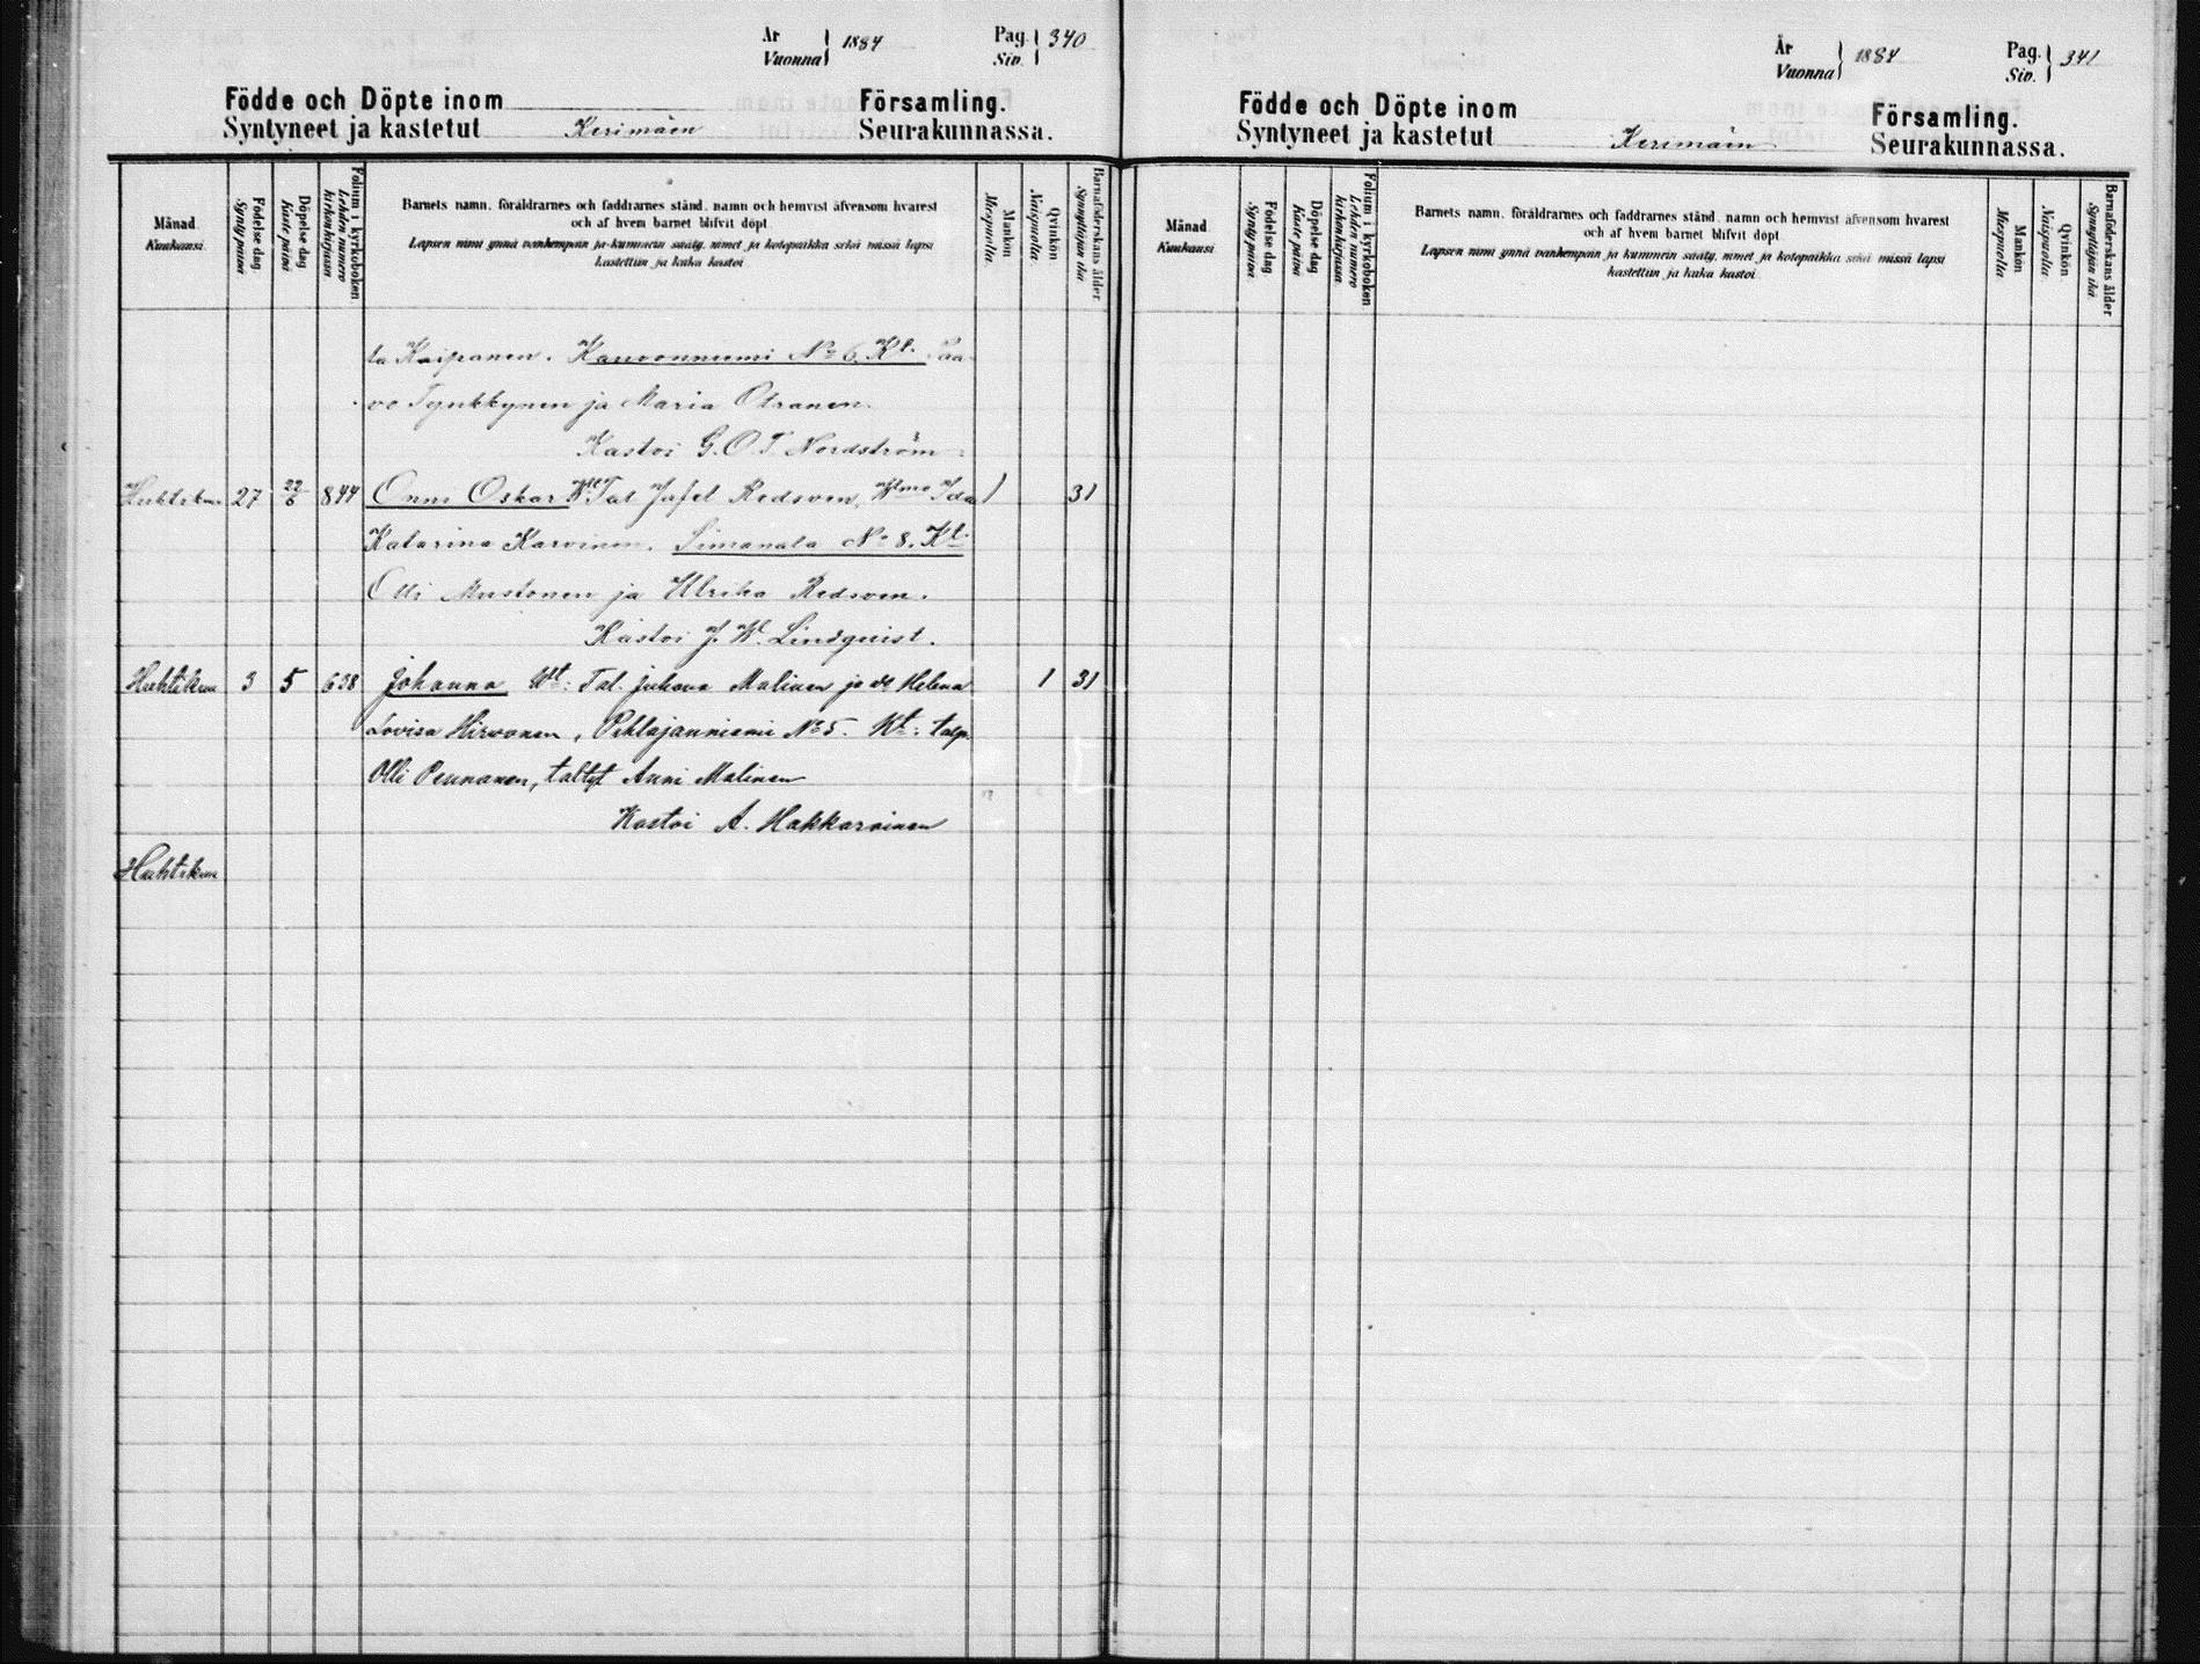 År
Vuonna } 1884
Pag.
Siv. } 340
Födde och Döpte inom Församling.
Syntyneet ja kastetut Kerimäen Seurakunnassa.
Månad
Kuukausi.
Födelse dag
Synty päivä
Döpelse dag
Kaste päivä
Folium i kyrkoboken
Lehden numero
kirkonkirjassa
Barnets namn, föräldrarnes och faddrarnes stånd, namn och hemvist äfvensom hvarest
och af hvem barnet blifvit döpt
Lapsen nimi ynnä vanhempain ja kummein sääty, nimet ja kotopaikka sekä missä lapsi
kastettiin ja kuka kastoi
Mankön
Miespuolia.
Qvinkön
Naispuolia.
Barnaföderskans ålder
Synnyttäjän ikä
ta Kaipanen. Karvonniemi No 6. Kt. Paa-
vo Tynkkynen ja Maria Otranen.
Kastoi G. O. T. Nordström.
Huhtikuu 27 22/6 844 Onni Oskar Tal Jafet Redsven, Ida 1 31
Katarina Karvinen. Simanala No 8. Kt.
Olli Mustonen ja Ulrika Redsven.
Kastoi J. W. Lindquist.
Huhtikuu 3 5 638 Johanna Wt: Tal. Juhana Malinen ja Helena 1 31
Lovisa Hirvonen, Pihlajanniemi No 5. Kt: talp.
Olli Pennanen, taltyt Anni Malinen
Kastoi A. Hakkarainen
Huhtikuu
År
Vuonna } 1884
Pag.
Siv. } 341
Födde och Döpte inom Församling.
Syntyneet ja kastetut Kerimäen Seurakunnassa.
Månad
Kuukausi
Födelse dag
Synty päivä
Döpelse dag
Kaste päivä
Folium i kyrkoboken
Lehden numero
kirkonkirjassa
Barnets namn, föräldrarnes och faddrarnes stånd, namn och hemvist äfvensom hvarest
och af hvem barnet blifvit döpt
Lapsen nimi ynnä vanhempain ja kummein sääty, nimet ja kotopaikka sekä missä lapsi
kastettiin ja kuka kastoi.
Mankön
Miespuolia
Qvinkön
Naispuolia
Barnaföderskans ålder
Synnyttäjän ikä